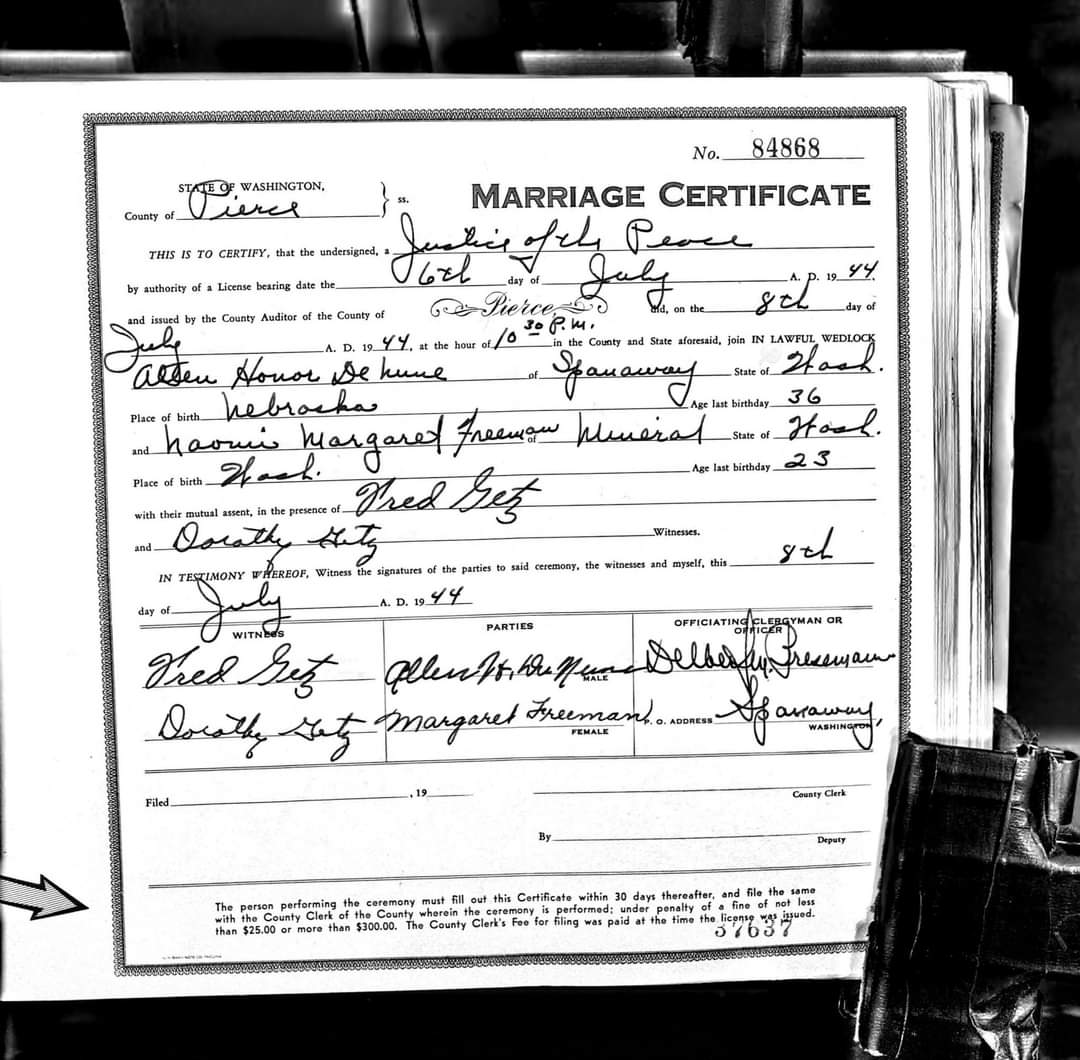 No. 84868
STATE OF WASHINGTON,
County of Pierce } ss.
MARRIAGE CERTIFICATE
THIS IS TO CERTIFY, that the undersigned, a Justice of the Peace
by authority of a License bearing date the 6th day of July A. D. 19 44
and issued by the County Auditor of the County of Pierce did, on the 8th day of
July A. D. 19 44, at the hour of 10 30 P.M. in the County and State aforesaid, join IN LAWFUL WEDLOCK
Allen Honor of Spanaway State of Wash.
Place of birth Nebraska Age last birthday 36
and Naomi Margaret Freeman of Mineral State of Wash.
Place of birth Wash. Age last birthday 23
with their mutual assent, in the presence of Fred Getz
and Dorothy Getz Witnesses.
IN TESTIMONY WHEREOF, Witness the signatures of the parties to said ceremony, the witnesses and myself, this 8th
day of July A. D. 19 44
WITNESS PARTIES OFFICIATING CLERGYMAN OR OFFICER
Fred Getz Allen H. MALE
Dorothy Getz Margaret Freeman FEMALE P. O. ADDRESS Spanaway, WASHINGTON
Filed , 19 County Clerk
By Deputy
The person performing the ceremony must fill out this Certificate within 30 days thereafter, and file the same
with the County Clerk of the County wherein the ceremony is performed; under penalty of a fine of not less
than $25.00 or more than $300.00. The County Clerk's Fee for filing was paid at the time the license was issued.
37637